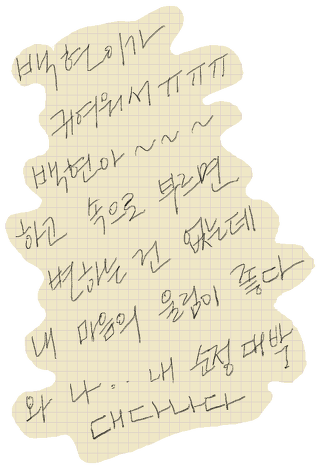 백현이가
귀여워서 ㅠㅠㅠ
백현아 ~~~
하고 속으로 부르면
변하는 건 없는데
내 마음의 울림이 좋다
와 나.. 내 순정 대발
대다나다